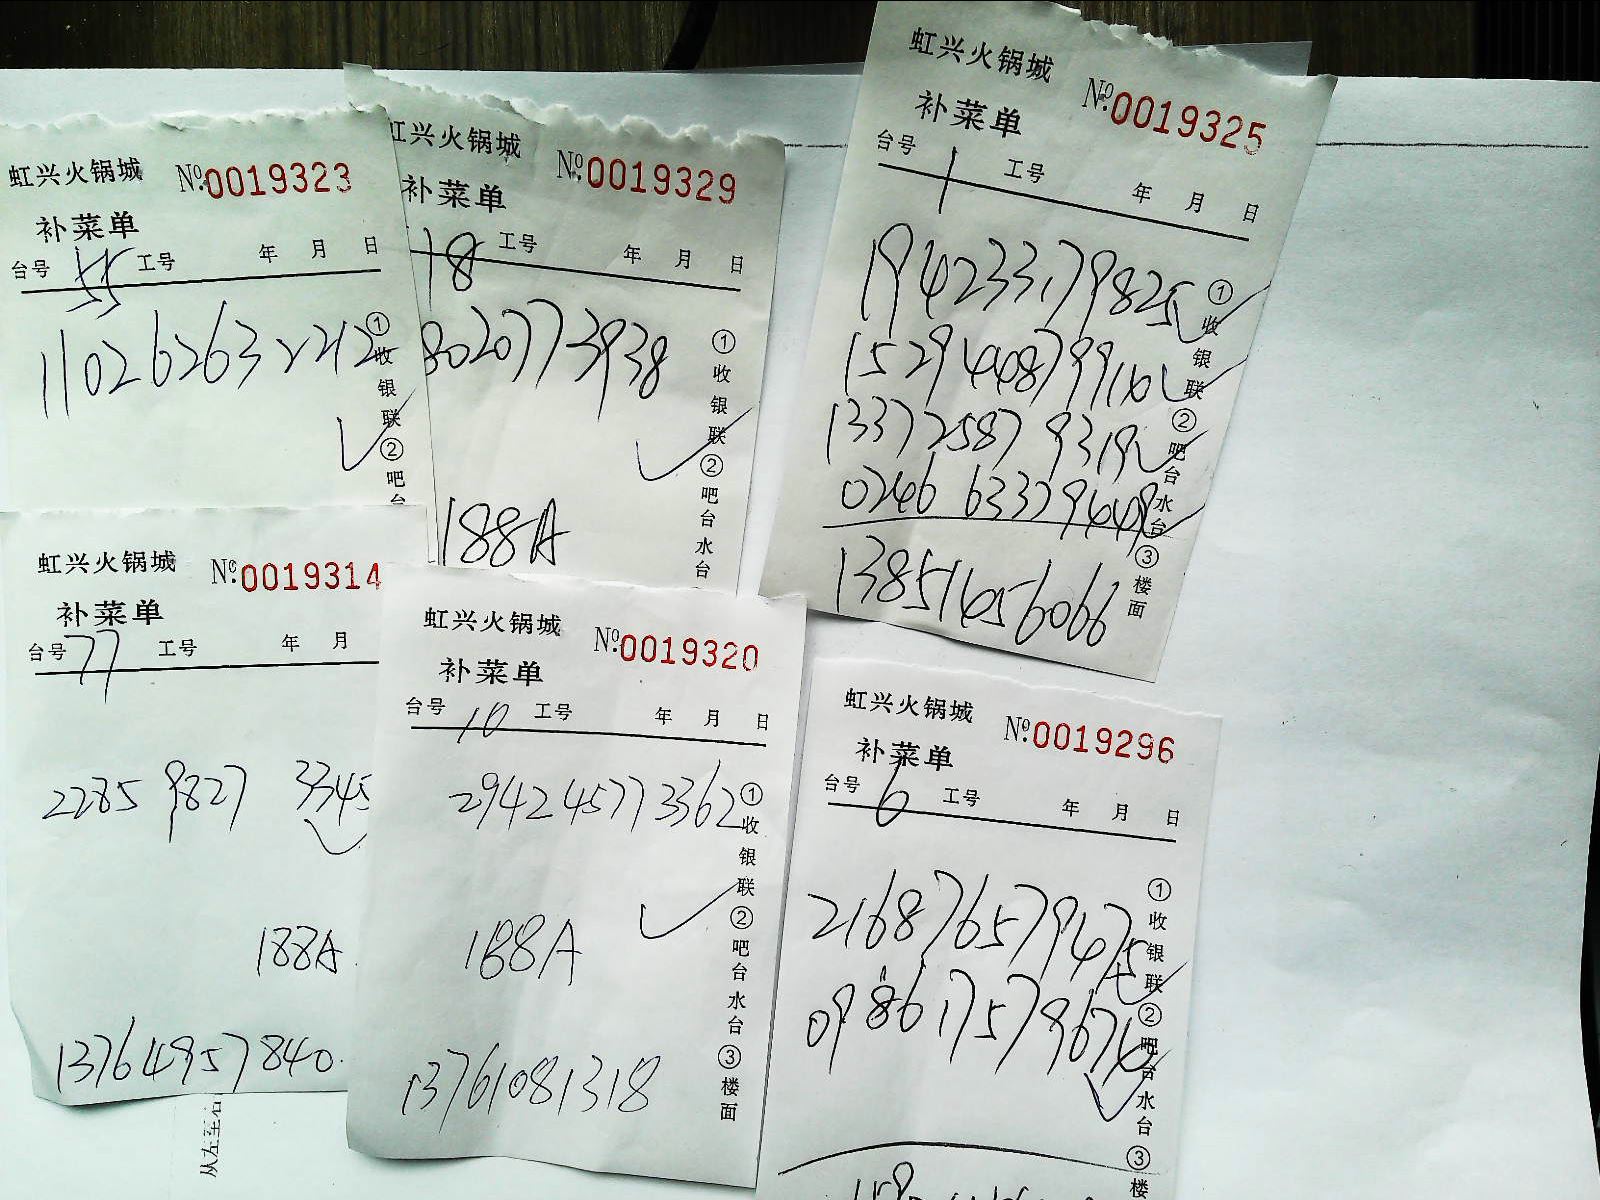 虹兴火锅城 №:0019323
补菜单
台号 55 工号 年 月 日
110262632212
①收银联②吧台
虹兴火锅城 №:0019329
补菜单
18 工号 年 月 日
8020773938
188A
①收银联②吧台水台
虹兴火锅城 №:0019325
补菜单
台号 1 工号 年 月 日
194233179825
1337 2587 9319
0246 63379449
13851456066
①收银联②吧台水台③楼面
虹兴火锅城 №:0019314
补菜单
台号 77 工号 年 月
2285 9827 3345
188A
13764957840
虹兴火锅城 №:0019320
补菜单
台号 10 工号 年 月 日
294245773362
188A
13761081318
①收银联②吧台水台③楼面
虹兴火锅城 №:0019296
补菜单
台号 6 工号 年 月 日
216876579475
①收银联②吧台水台③楼
从左至右